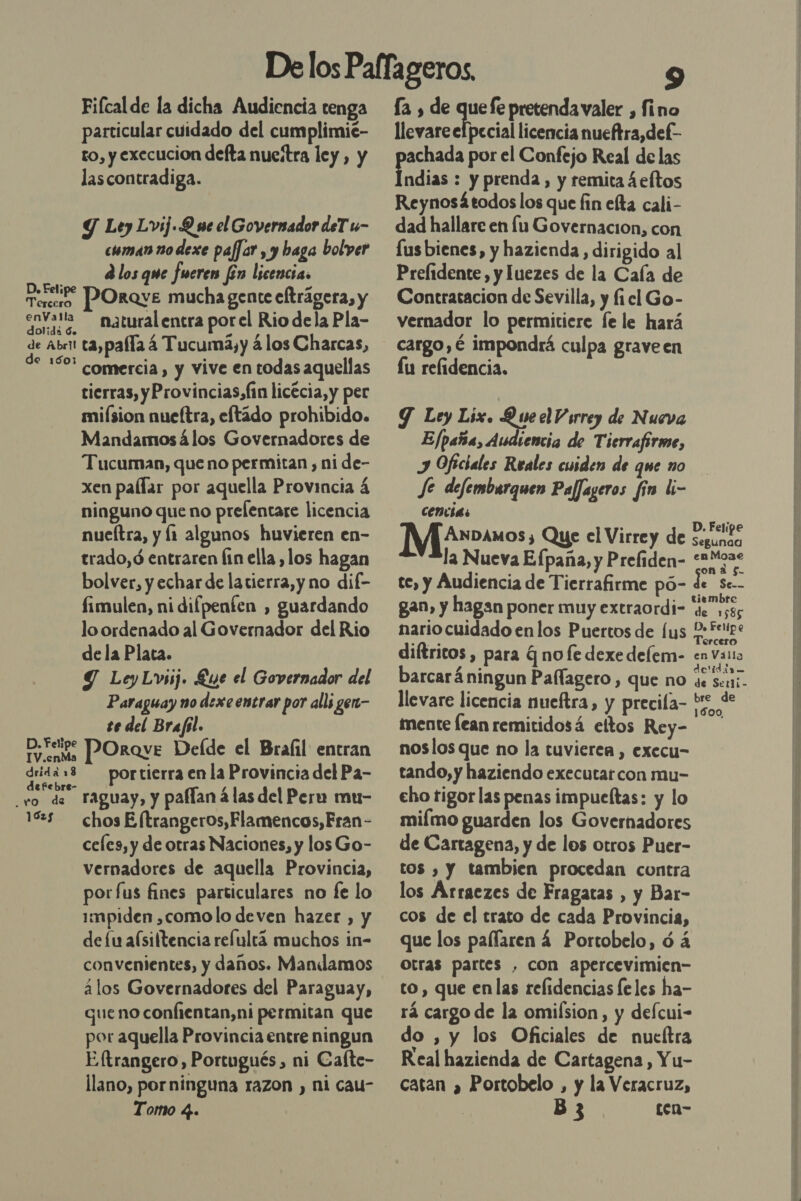 De los Passageros. 9
Fiscal de la dicha Audiencia tenga
particular cuidado del cumplimiē-
to, y execucion desta nuestra ley, y
las contradiga.
¶ Ley Lvij. Que el Governador de Tu-
cuman no dexe passar, y haga bolver
à los que fueren sin licencia.
D. Felipe
Tercero
en Valla
dolid à 6.
de Abril
de 1601
POrqve mucha gente estrāgera, y
natural entra por el Rio de la Pla-
ta, passa á Tucumā, y á los Charcas,
comercia, y vive en todas aquellas
tierras, y Provincias, sin licēcia, y per
mission nuestra, estādo prohibido.
Mandamos á los Governadores de
Tucuman, que no permitan, ni de-
xen passar por aquella Provincia á
ninguno que no presentare licencia
nuestra, y si algunos huvieren en-
trado, ó entraren sin ella, los hagan
bolver, y echar de la tierra, y no dis-
simulen, ni dispensen, guardando
lo ordenado al Governador del Rio
de la Plata.
¶ Ley Lviij. Que el Governador del
Paraguay no dexe entrar por alli gen-
te del Brasil.
D. Felipe
IV. en Ma
drid à 18
de febre-
ro de
1625
POrqve Desde el Brasil entran
por tierra en la Provincia del Pa-
raguay, y passan á las del Peru mu-
chos Estrangeros, Flamencos, Fran-
ceses, y de otras Naciones, y los Go-
vernadores de aquella Provincia,
por sus fines particulares no se lo
impiden, como lo deven hazer, y
de su assistencia resultā muchos in-
convenientes, y daños. Mandamos
á los Governadores del Paraguay,
que no consientan, ni permitan que
por aquella Provincia entre ningun
Estrangero, Portugués, ni Caste-
llano, por ninguna razon, ni cau-
Tomo 4.
sa, de que se pretenda valer, sino
llevare especial licencia nuestra, des-
pachada por el Consejo Real de las
Indias: y prenda, y remita á estos
Reynos á todos los que sin esta cali-
dad hallare en su Governacion, con
sus bienes, y hazienda, dirigido al
Presidente, y Iuezes de la Casa de
Contratacion de Sevilla, y si el Go-
vernador lo permitiere se le hará
cargo, é impondrá culpa grave en
su residencia.
¶ Ley Lix. Que el Virrey de Nueva
España, Audiencia de Tierrafirme,
y Oficiales Reales cuiden de que no
se desembarquen Passageros sin li-
cencia.
D. Felipe
Segundo
en Monz
con à 5.
de Se-
tiembre
de 1585
D. Felipe
Tercero
en Valla
dolid à
de Seti-
bre de
1600
MAndamos, Que el Virrey de
la Nueva España, y Presiden-
te, y Audiencia de Tierrafirme pō-
gan, y hagan poner muy extraordi-
nario cuidado en los Puertos de sus
distritos, para q̄ no se dexe desem-
barcar á ningun Passagero, que no
llevare licencia nuestra, y precisa-
mente sean remitidos á estos Rey-
nos los que no la tuvieren, execu-
tando, y haziendo executar con mu-
cho rigor las penas impuestas: y lo
mismo guarden los Governadores
de Cartagena, y de los otros Puer-
tos, y tambien procedan contra
los Arraezes de Fragatas, y Bar-
cos de el trato de cada Provincia,
que los passaren á Portobelo, ó á
otras partes, con apercevimien-
to, que en las residencias se les ha-
rá cargo de la omission, y descui-
do, y los Oficiales de nuestra
Real hazienda de Cartagena, Yu-
catan, Portobelo, y la Veracruz,
B 3 ten-